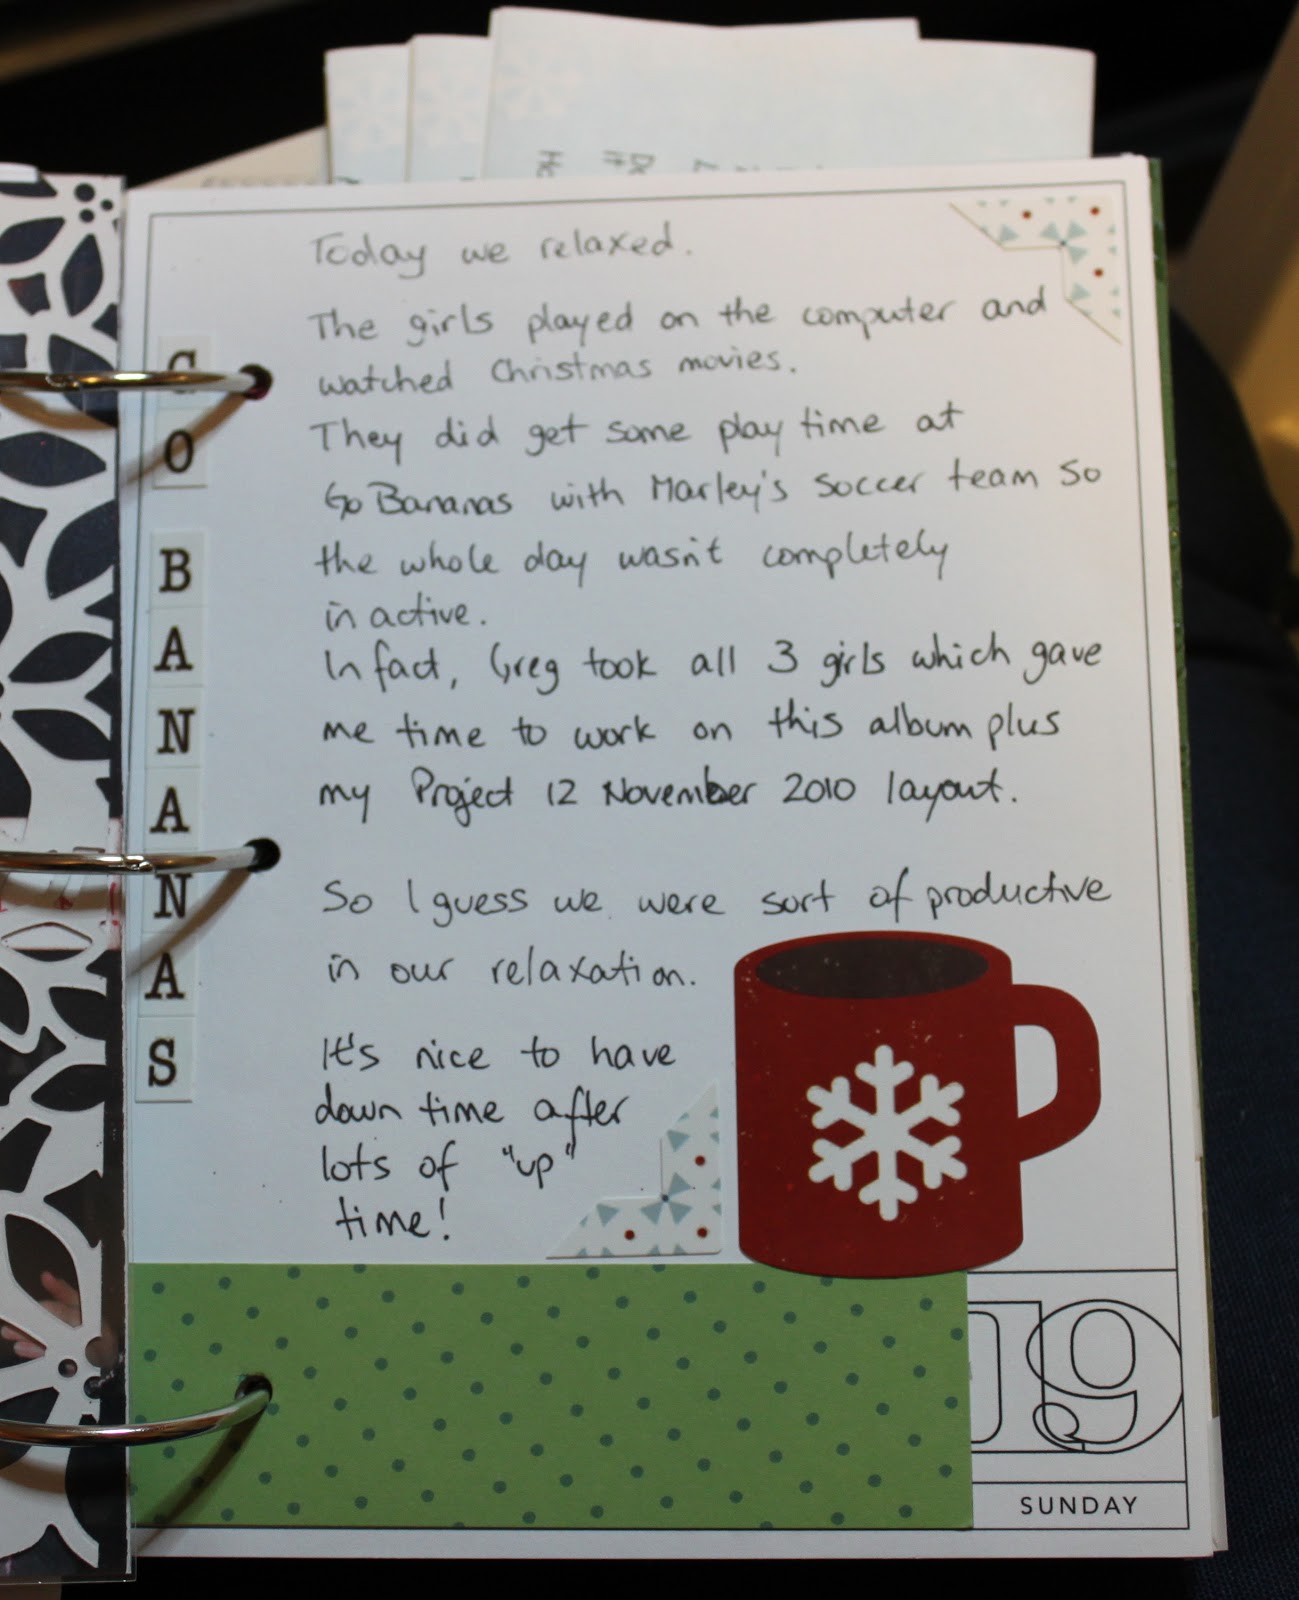 Today we relaxed.
The girls played on the computer and
watched Christmas movies.
They did get some play time at
Go Bananas with Marley's soccer team so
the whole day wasn't completely
inactive.
In fact, Greg took all 3 girls which gave
me time to work on this album plus
my Project 12 November 2010 layout.
So I guess we were sort of productive
in our relaxation.
It's nice to have
down time after
lots of "up"
time!
GO BANANAS
19
SUNDAY